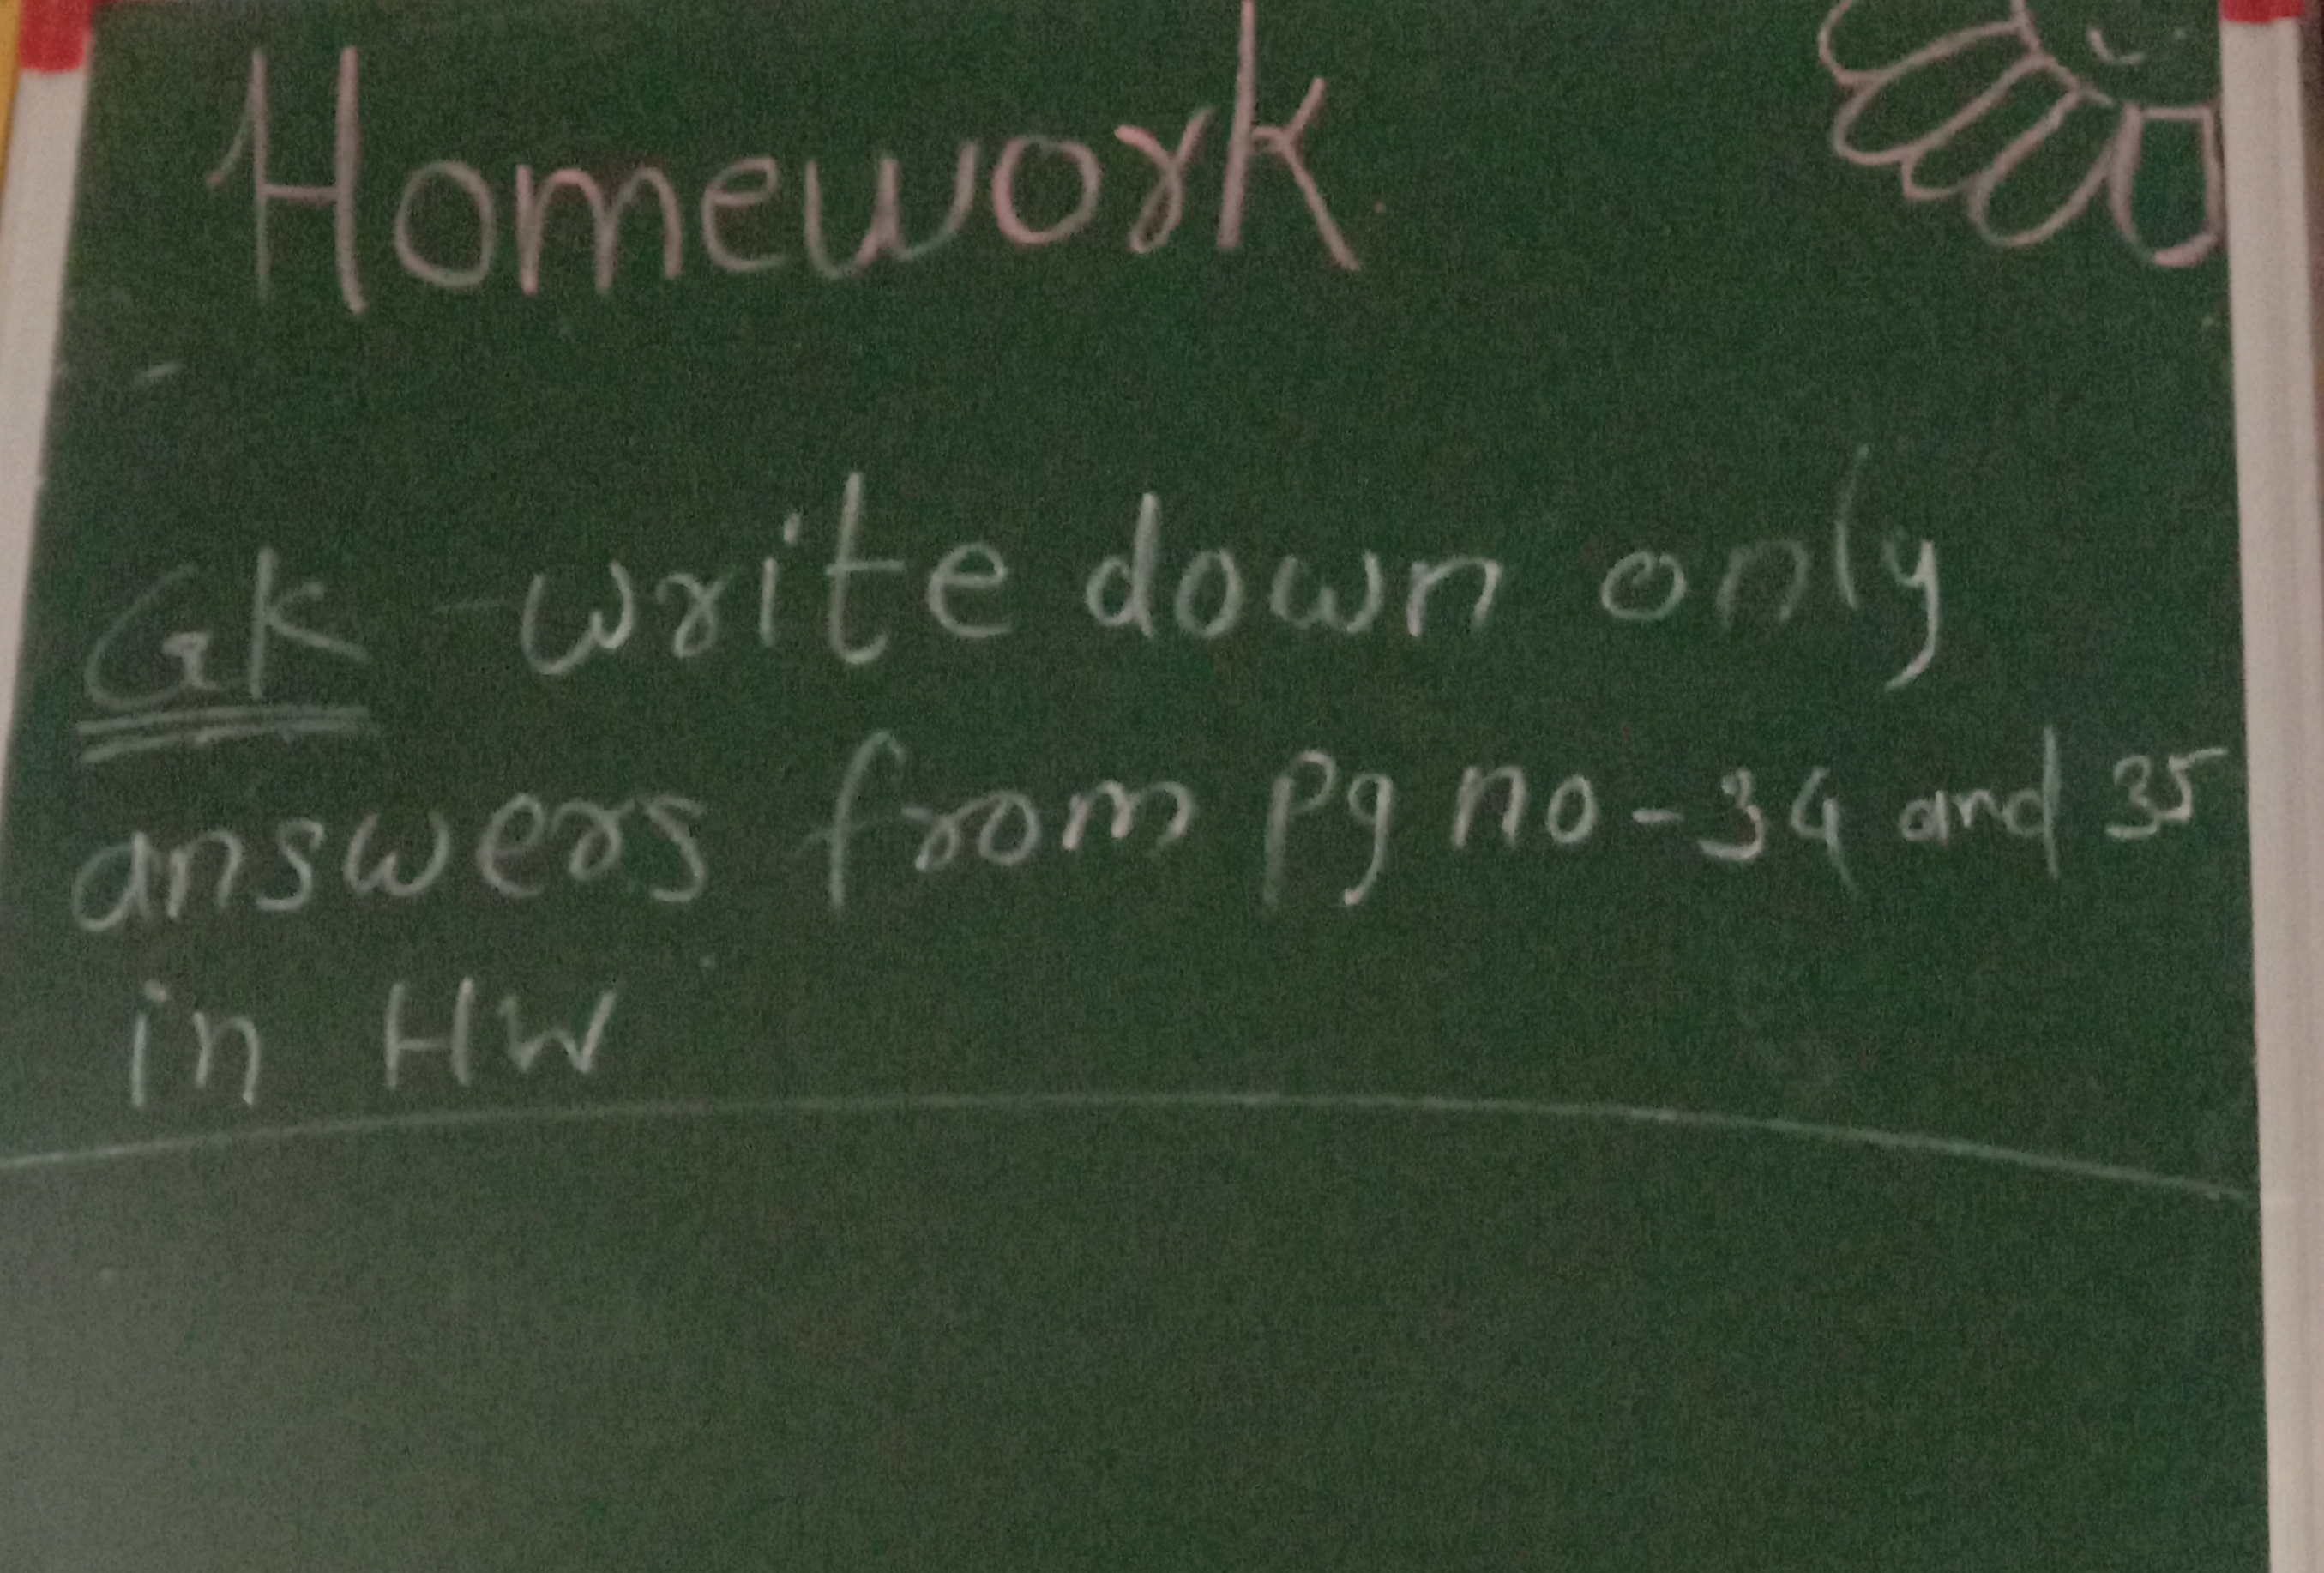 Homework
GK - write down only
answers from Pg no - 34 and 35
in HW